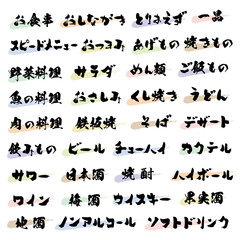 お食事 おしながき とりあえず 一品
スピードメニュー おつまみ あげもの 焼きもの
野菜料理 サラダ めん類 ご飯もの
魚の料理 おさしみ くし焼き うどん
肉の料理 鉄板焼 そば デザート
飲みもの ビール チューハイ カクテル
サワー 日本酒 焼酎 ハイボール
ワイン 梅酒 ウイスキー 果実酒
地酒 ノンアルコール ソフトドリンク